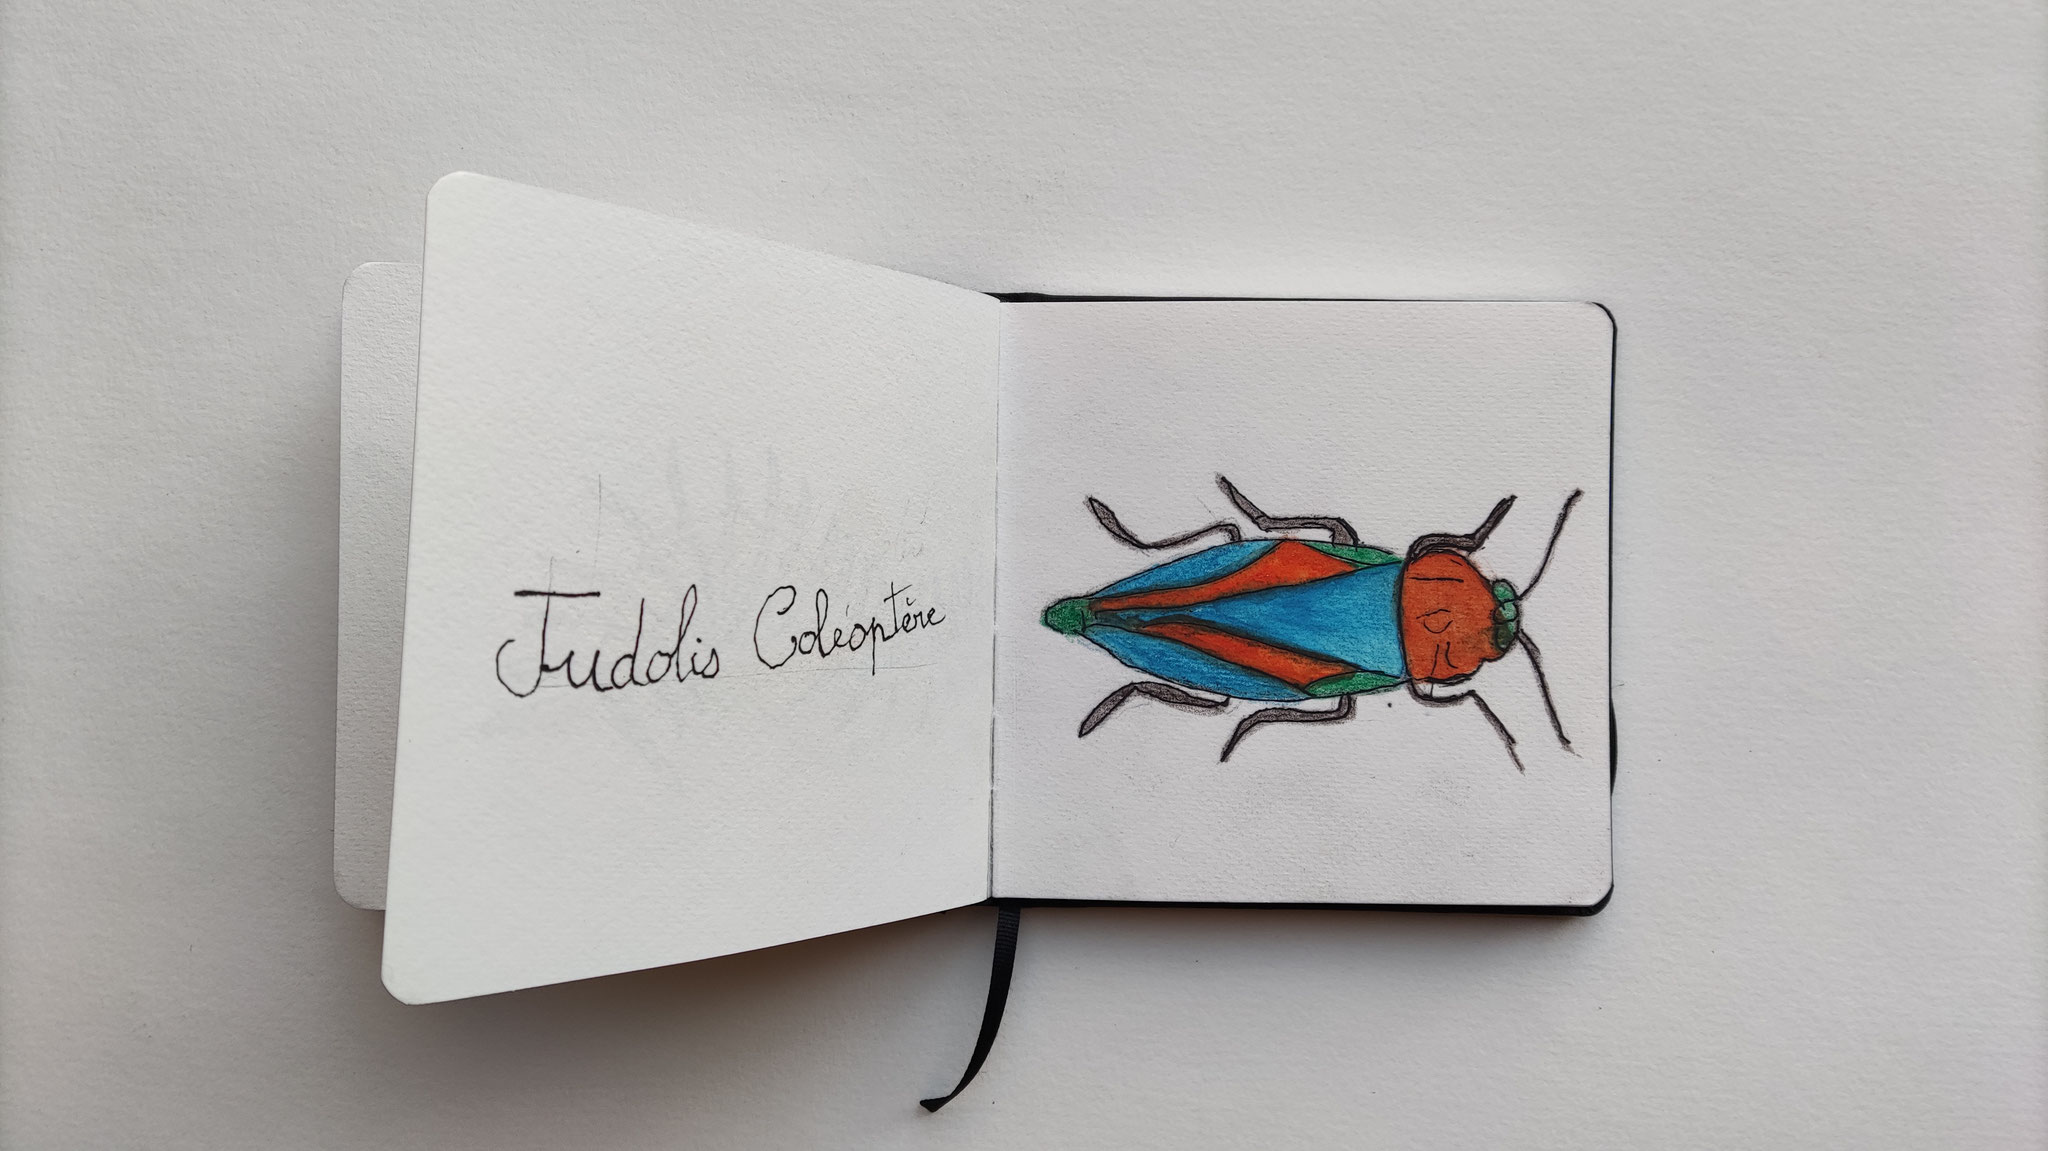 Judolis Coléoptère